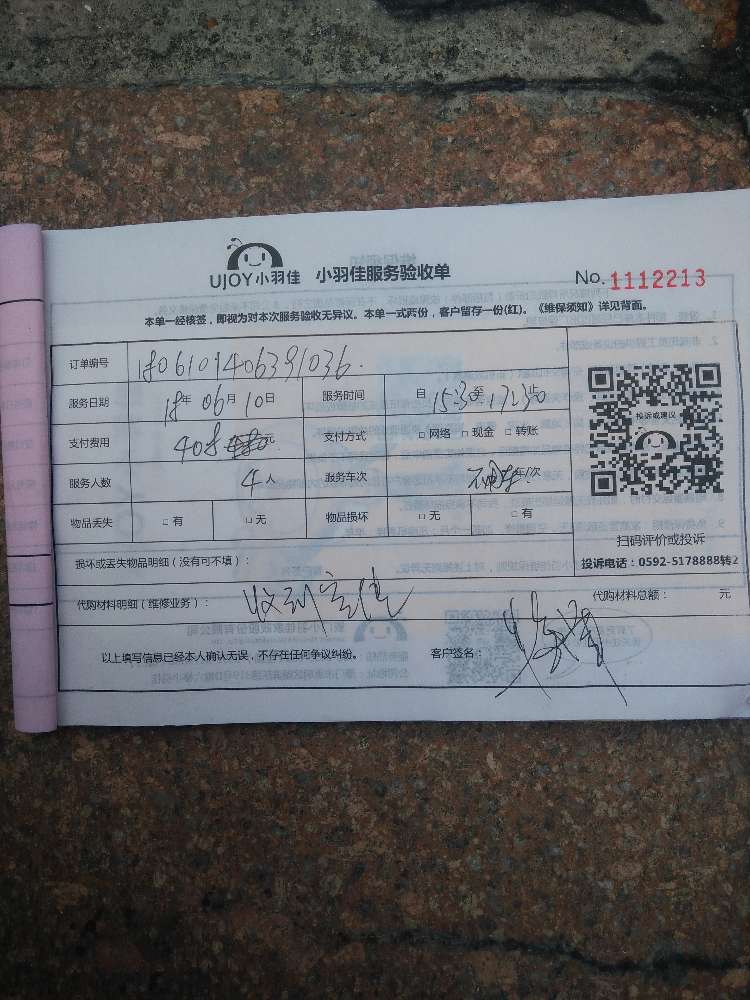 UJOY小羽佳 小羽佳服务验收单 No.1112213
本单一经核签，即视为对本次服务验收无异议。本单一式两份，客户留存一份(红)。《维保须知》详见背面。
订单编号 1806101406391036
服务日期 18年 06月 10日 服务时间 自 15:30 至 17:30 止
支付费用 408 元 支付方式 □ 网络 □ 现金 □ 转账
服务人数 4人 服务车次 车/次
物品丢失 □ 有 □ 无 物品损坏 □ 无 □ 有
投诉或建议
扫码评价或投诉
投诉电话：0592-5178888转2
损坏或丢失物品明细（没有可不填）：
代购材料明细（维修业务）： 代购材料总额： 元
以上填写信息已经本人确认无误，不存在任何争议纠纷。 客户签名：